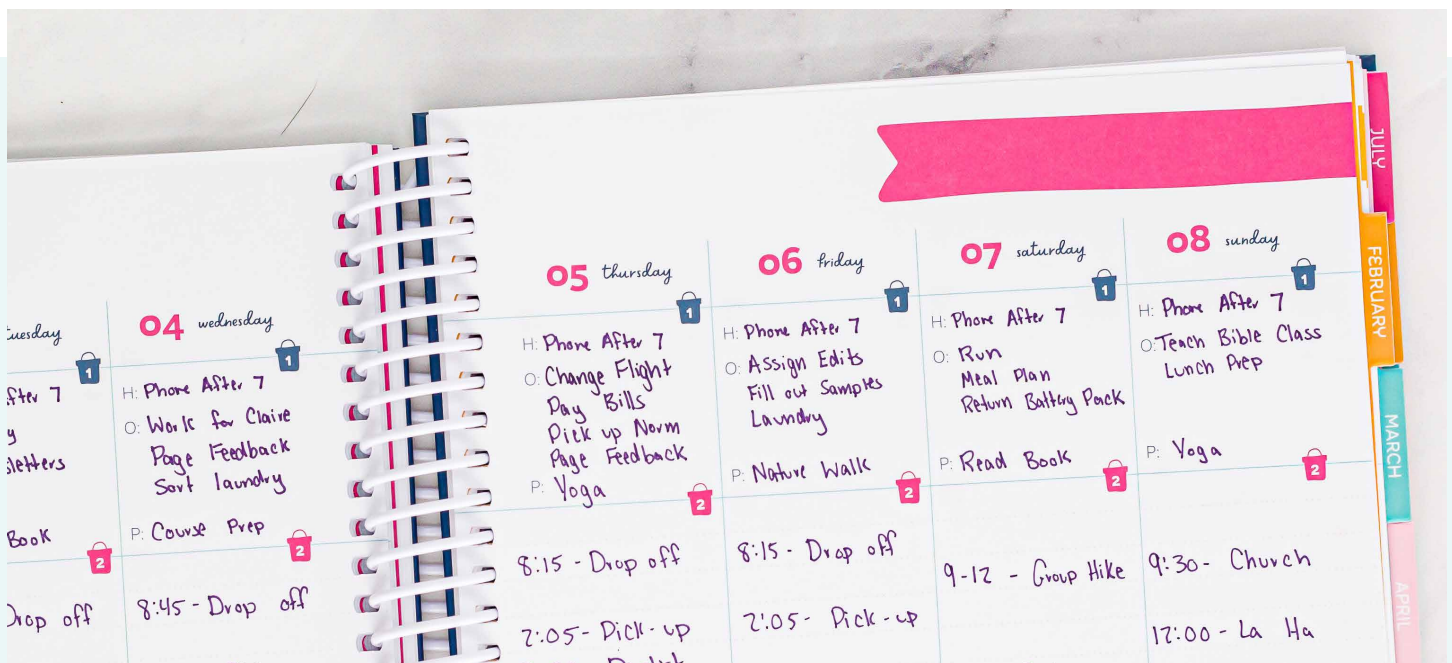 uesday
1
fter 7
y
sletters
Book
2
Drop off
04 wednesday
1
H: Phone After 7
O: Work for Claire
Page Feedback
Sort laundry
P: Course Prep
2
8:45 - Drop off
05 thursday
1
H: Phone After 7
O: Change Flight
Pay Bills
Pick up Norm
Page Feedback
P: Yoga
2
8:15 - Drop off
2:05 - Pick-up
06 friday
1
H: Phone After 7
O: Assign Edits
Fill out Samples
Laundry
P: Nature Walk
2
8:15 - Drop off
2:05 - Pick-up
07 saturday
1
H: Phone After 7
O: Run
Meal Plan
Return Battery Pack
P: Read Book
2
9-12 - Group Hike
08 sunday
1
H: Phone After 7
O: Teach Bible Class
Lunch Prep
P: Yoga
2
9:30 - Church
12:00 - La Ha
JULY
FEBRUARY
MARCH
APRIL